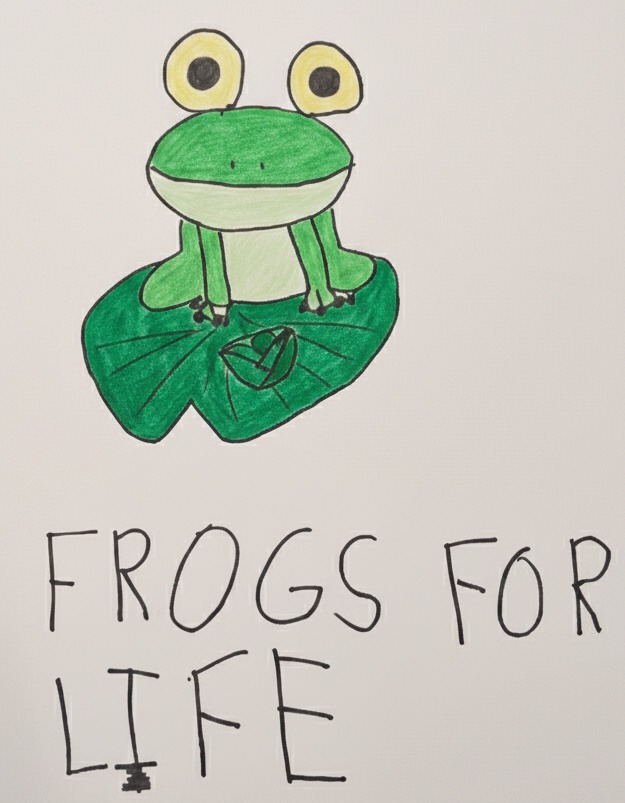 FROGS FOR
LIFE